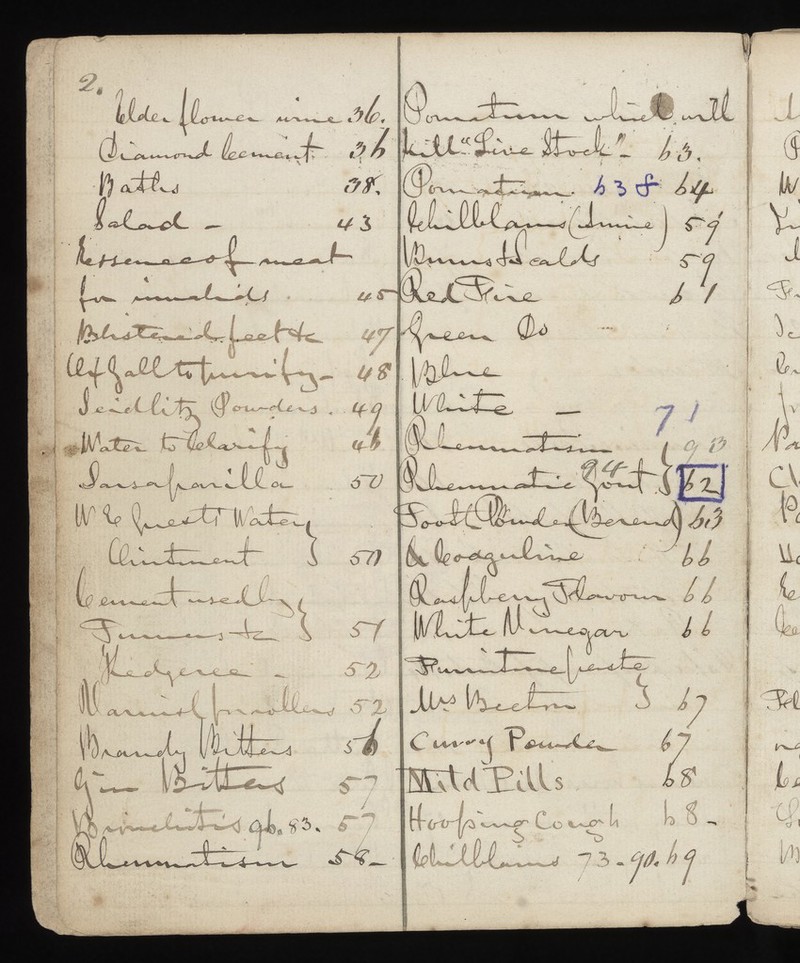 2.
Elder flower wine 36.
Diamond Cement. 36
Baths 38.
Salad - 43
Essence of meat
for invalids. 45
Blistered feet &c 47
Ox Gall to purify - 48
Seidlitz Powders. 49
Water to Clarify 46
Sarsaparilla 50
Water
Ointment } 50
Cement used by
Turners &c } 51
Kedgeree - 52
Varnish for rollers 52
Brandy Bitters 56
Gin Bitters 57
Bronchitis 96. 83. 57
Rheumatism 58-
Pomatum which will
kill "Live Stock" - 63.
Pomatum. 63 & 64
Chilblains ( ) 59
Burns & Scalds 59
Red Fire 61
Green Do
Blue
White - 71
Rheumatism 93
Rheumatic 94 Gout } 62
Tooth Powder (Berend) 63
Coaguline 66
Raspberry Flavour 66
White Vinegar 66
Furniture paste
Mrs Beeton } 67
Curry Powder 67
Mild Pills 68
Hooping Cough 68-
Chilblains 73-90.69